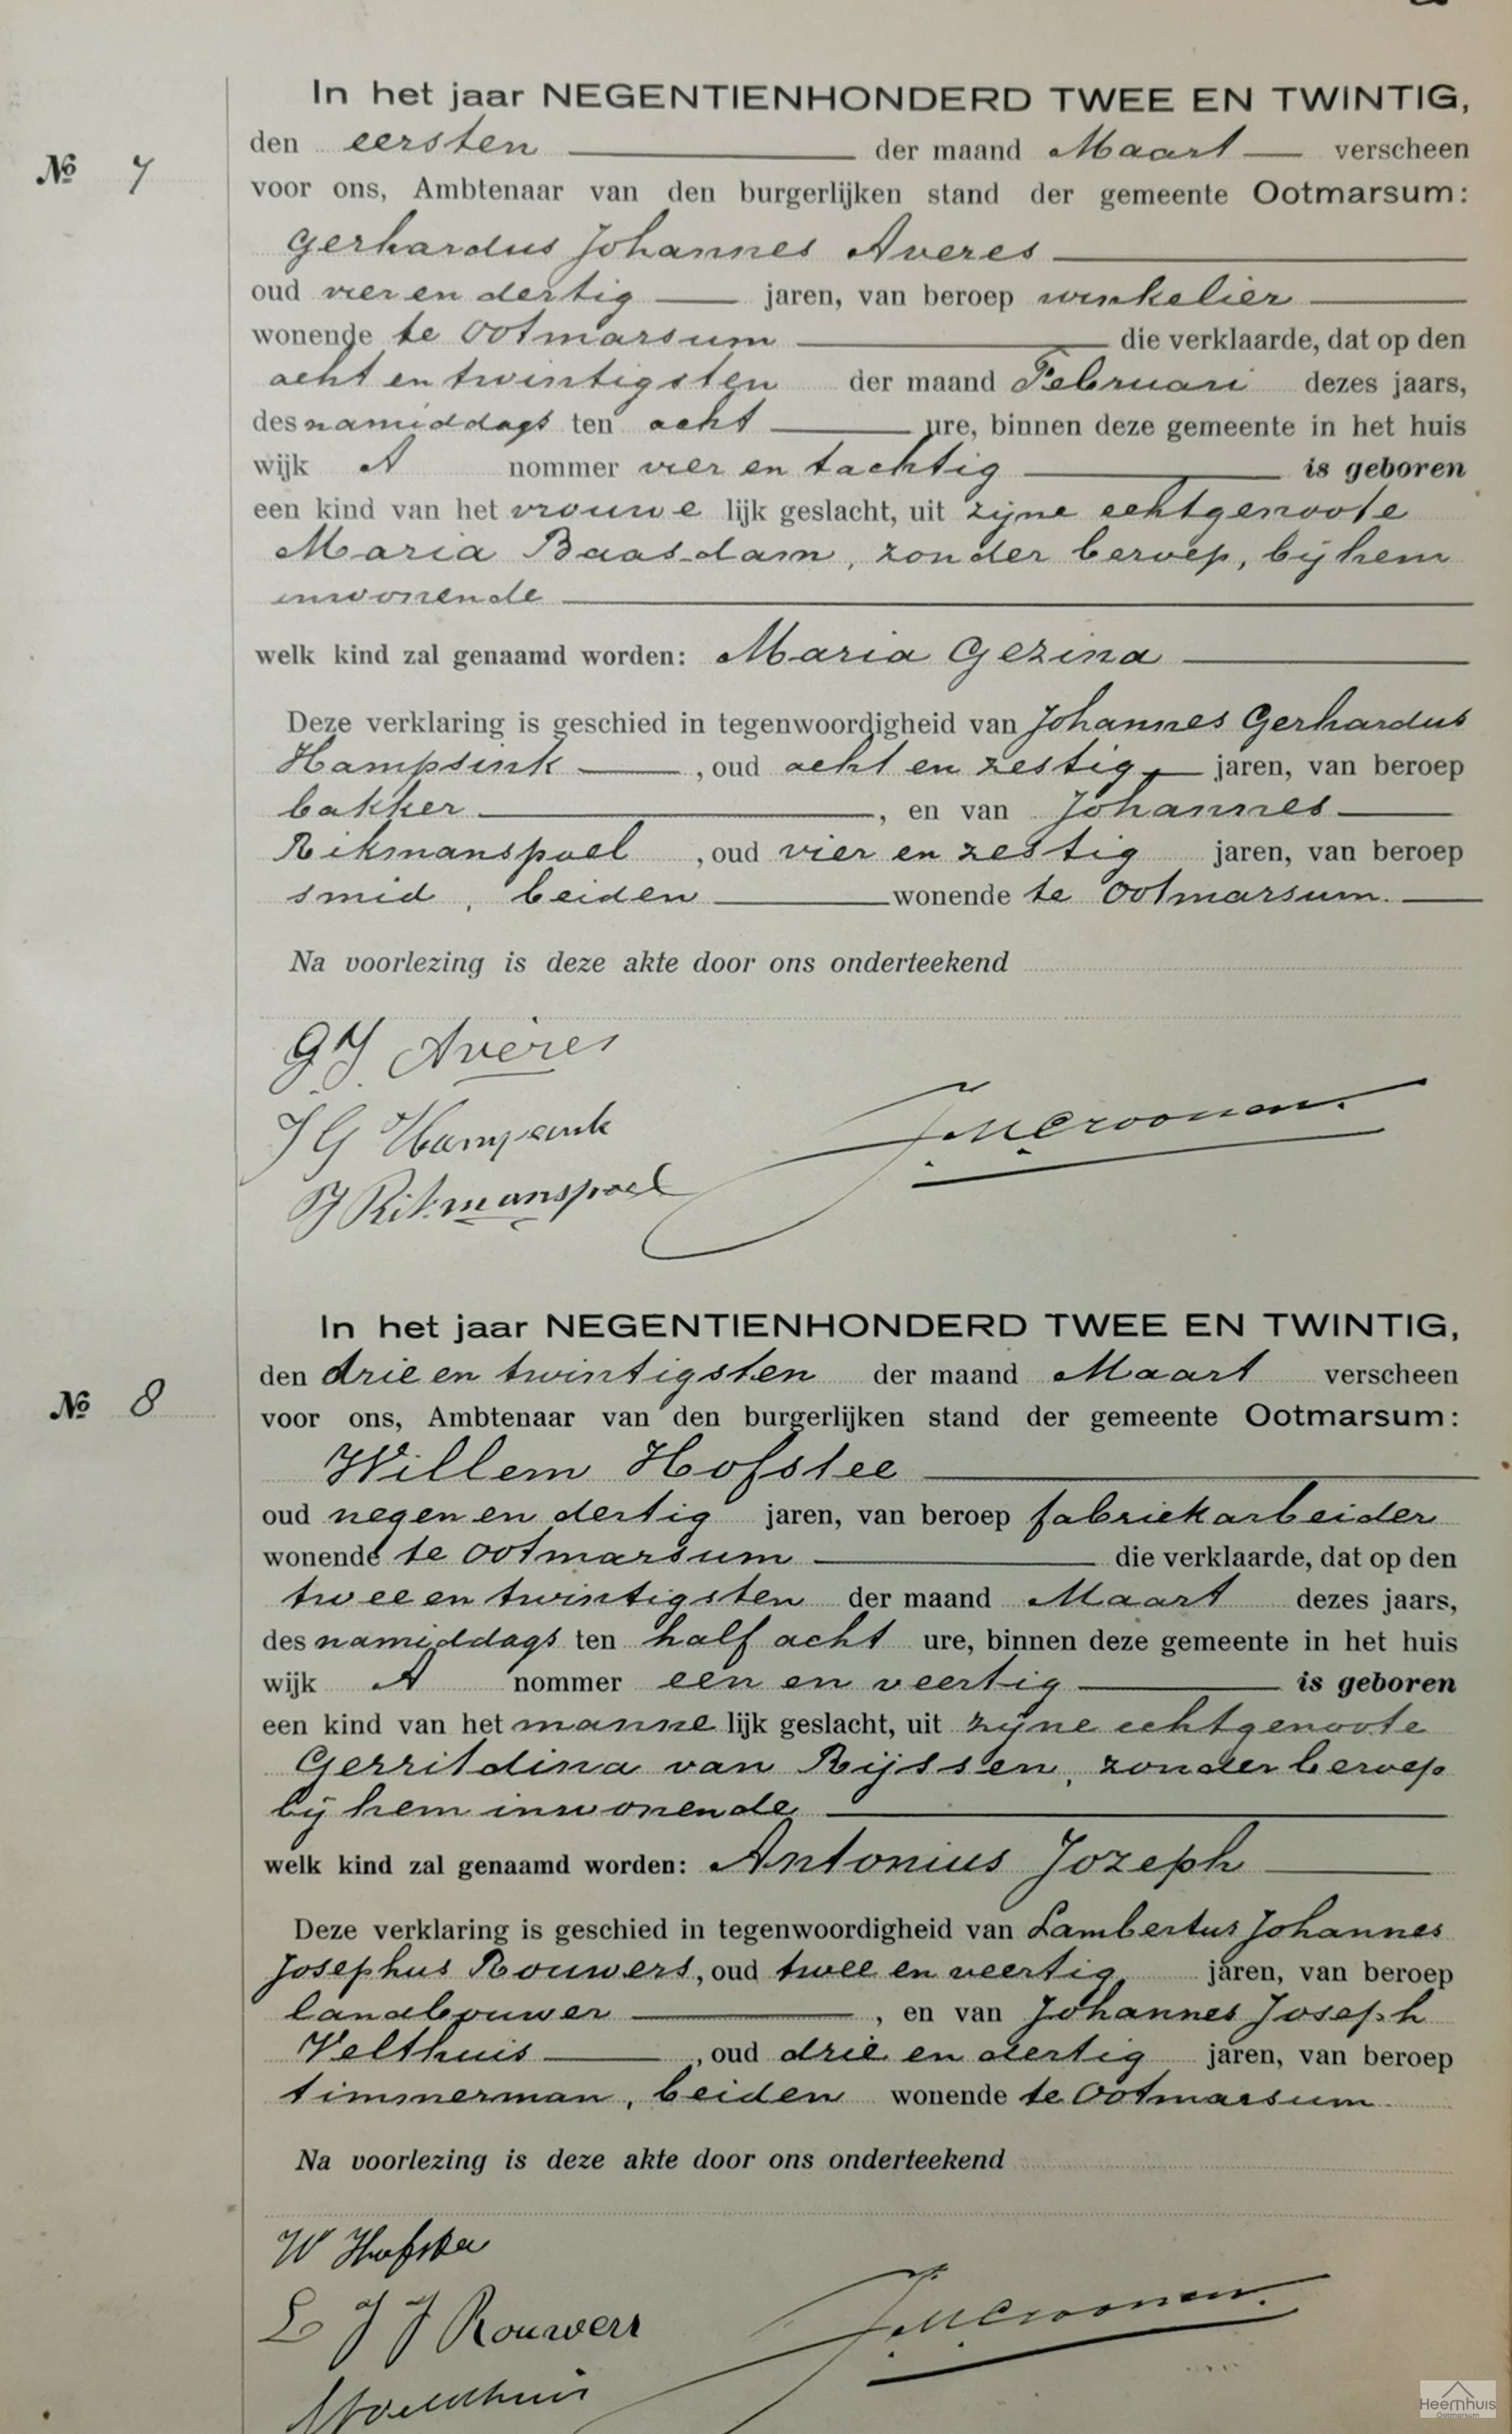 In het jaar NEGENTIENHONDERD TWEE EN TWINTIG,
den eersten der maand Maart verscheen
No 7
voor ons, Ambtenaar van den burgerlijken stand der gemeente Ootmarsum:
Gerhardus Johannes Averes
oud vier en dertig jaren, van beroep winkelier
wonende te Ootmarsum die verklaarde, dat op den
acht en twintigsten der maand Februari dezes jaars,
des namiddags ten acht ure, binnen deze gemeente in het huis
wijk A nommer vier en tachtig is geboren
een kind van het vrouwelijk geslacht, uit zijne echtgenoote
Maria Baasdam, zonder beroep, bij hem
inwonende
welk kind zal genaamd worden: Maria Gezina
Deze verklaring is geschied in tegenwoordigheid van Johannes Gerhardus
Hampsink, oud acht en zestig jaren, van beroep
bakker, en van Johannes
Rikmanspoel, oud vier en zestig jaren, van beroep
smid, beiden wonende te Ootmarsum.
Na voorlezing is deze akte door ons onderteekend
GJ Averes
JG Hampsink
J Rikmanspoel
In het jaar NEGENTIENHONDERD TWEE EN TWINTIG,
den drie en twintigsten der maand Maart verscheen
No 8
voor ons, Ambtenaar van den burgerlijken stand der gemeente Ootmarsum:
Willem Hofstee
oud negen en dertig jaren, van beroep fabriekarbeider
wonende te Ootmarsum die verklaarde, dat op den
twee en twintigsten der maand Maart dezes jaars,
des namiddags ten half acht ure, binnen deze gemeente in het huis
wijk A nommer een en veertig is geboren
een kind van het mannelijk geslacht, uit zijne echtgenoote
Gerritdina van Rijssen, zonder beroep
bij hem inwonende
welk kind zal genaamd worden: Antonius Jozeph
Deze verklaring is geschied in tegenwoordigheid van Lambertus Johannes
Josephus Rouwers, oud twee en veertig jaren, van beroep
landbouwer, en van Johannes Joseph
Velthuis, oud drie en dertig jaren, van beroep
timmerman, beiden wonende te Ootmarsum.
Na voorlezing is deze akte door ons onderteekend
W Hofstee
L J J Rouwers
Heemhuis
Ootmarsum